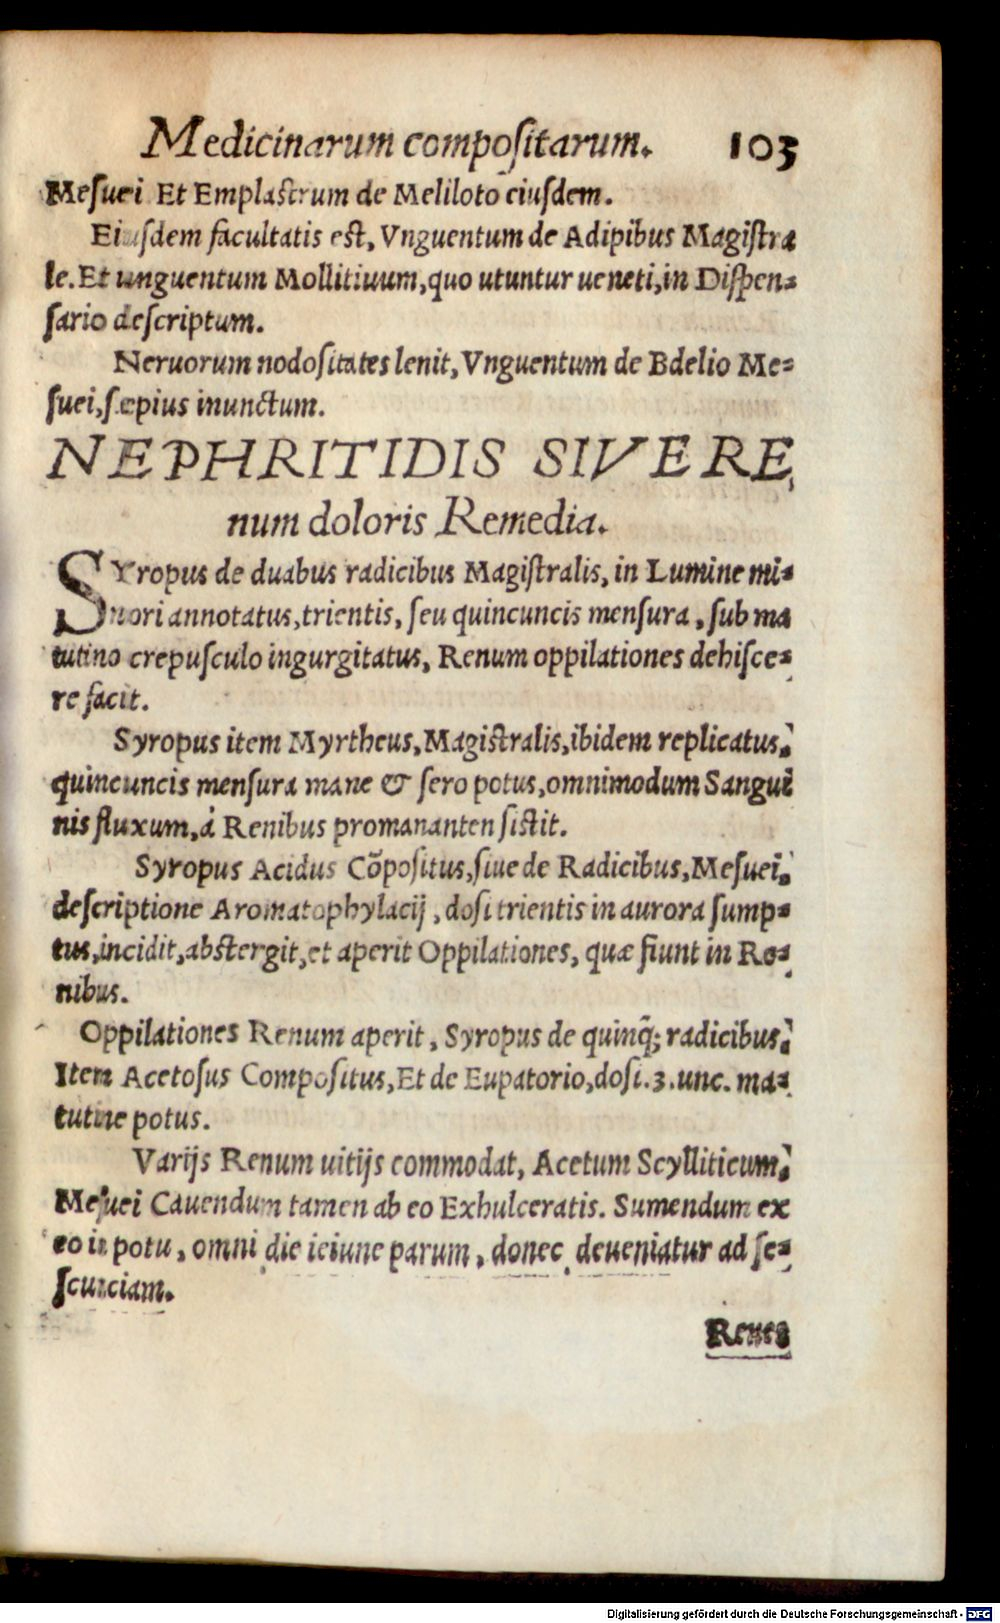 Medicinarum compositarum. 103
Mesuei Et Emplastrum de Meliloto eiusdem.
Eiusdem facultatis est, Vnguentum de Adipibus Magistra
le. Et unguentum Mollitiuum, quo utuntur ueneti, in Dispen-
sario descriptum.
Neruorum nodositates lenit, Vnguentum de Bdelio Me-
suei, sæpius inunctum.
NEPHRITIDIS SIVE RE,
num doloris Remedia.
SYropus de duabus radicibus Magistralis, in Lumine mi-
nori annotatus, trientis, seu quincuncis mensura, sub ma
tutino crepusculo ingurgitatus, Renum oppilationes dehisce-
re facit.
Syropus item Myrtheus, Magistralis, ibidem replicatus,
quincuncis mensura mane & sero potus, omnimodum Sangui
nis fluxum, á Renibus promananten sistit.
Syropus Acidus Cõpositus, siue de Radicibus, Mesuei,
descriptione Aromatophylacij, dosi trientis in aurora sump-
tus, incidit, abstergit, et aperit Oppilationes, quæ fiunt in Re-
nibus.
Oppilationes Renum aperit, Syropus de quinq; radicibus,
Item Acetosus Compositus, Et de Eupatorio, dosi. 3. unc. ma-
tutine potus.
Varijs Renum uitijs commodat, Acetum Scylliticum,
Mesuei Cauendum tamen ab eo Exhulceratis. Sumendum ex
eo in potu, omni die ieiune parum, donec deueniatur ad se-
scunciam.
Renes
Digitalisierung gefördert durch die Deutsche Forschungsgemeinschaft - DFG